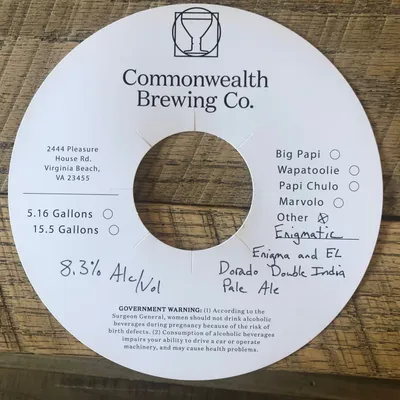 Commonwealth
Brewing Co.
2444 Pleasure
House Rd.
Virginia Beach,
VA 23455
5.16 Gallons
15.5 Gallons
Big Papi
Wapatoolie
Papi Chulo
Marvolo
Other
Enigmatic
8.3% Alc/Vol
Enigma and EL
Dorado Double India
Pale Ale
GOVERNMENT WARNING: (1) According to the
Surgeon General, women should not drink alcoholic
beverages during pregnancy because of the risk of
birth defects. (2) Consumption of alcoholic beverages
impairs your ability to drive a car or operate
machinery, and may cause health problems.